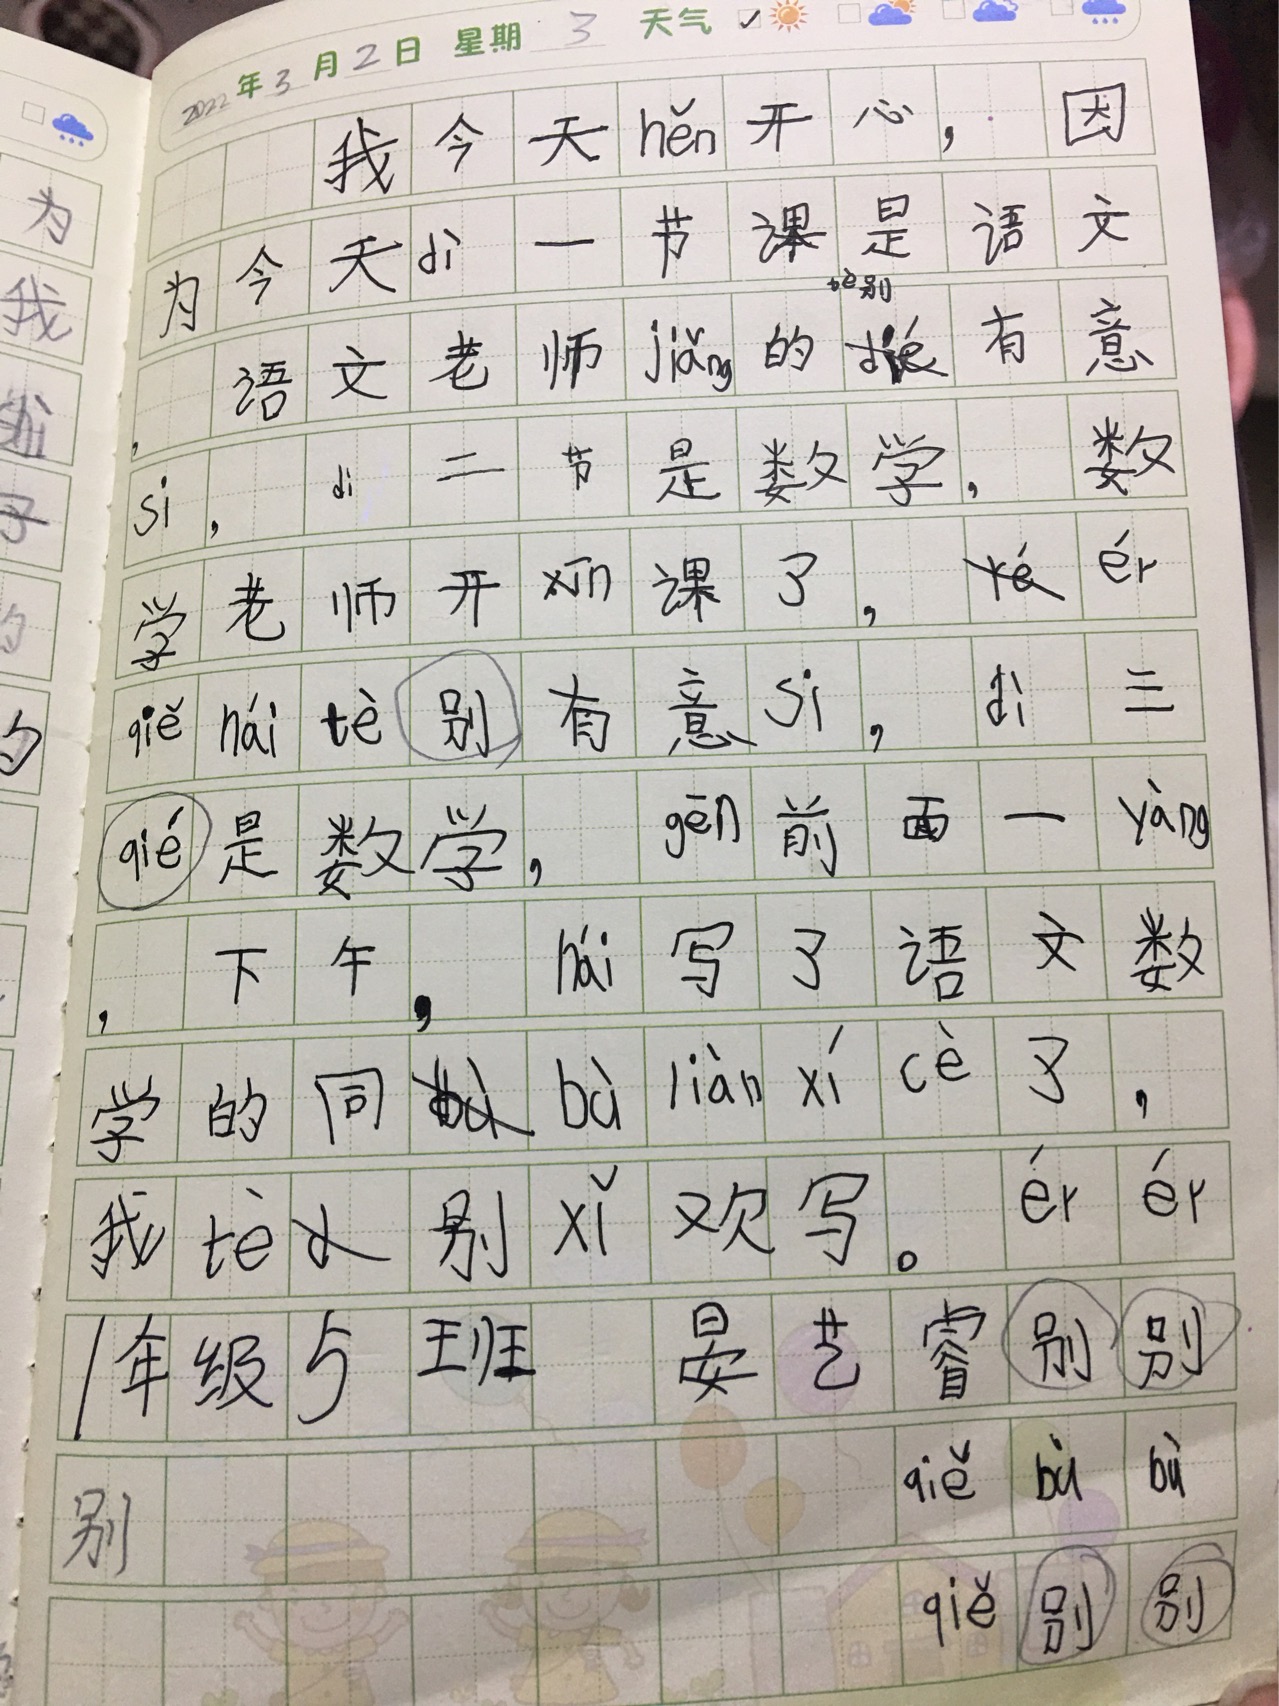 2022年3月2日 星期3 天气
我今天hěn开心,因
为今天dì一节课是语文
tè别
,语文老师jiǎng的有意
si,di二节是数学,数
学老师开xīn课了,ér
qiě hái tè别有意si,dì三
qié是数学,gēn前面一yàng
,下午,hái写了语文数
学的同bù liàn xí cè了,
我tè别xǐ欢写。ér ér
1年级5班 晏艺睿别别
别 qiě bù bù
qiě别别
为
我
子
的